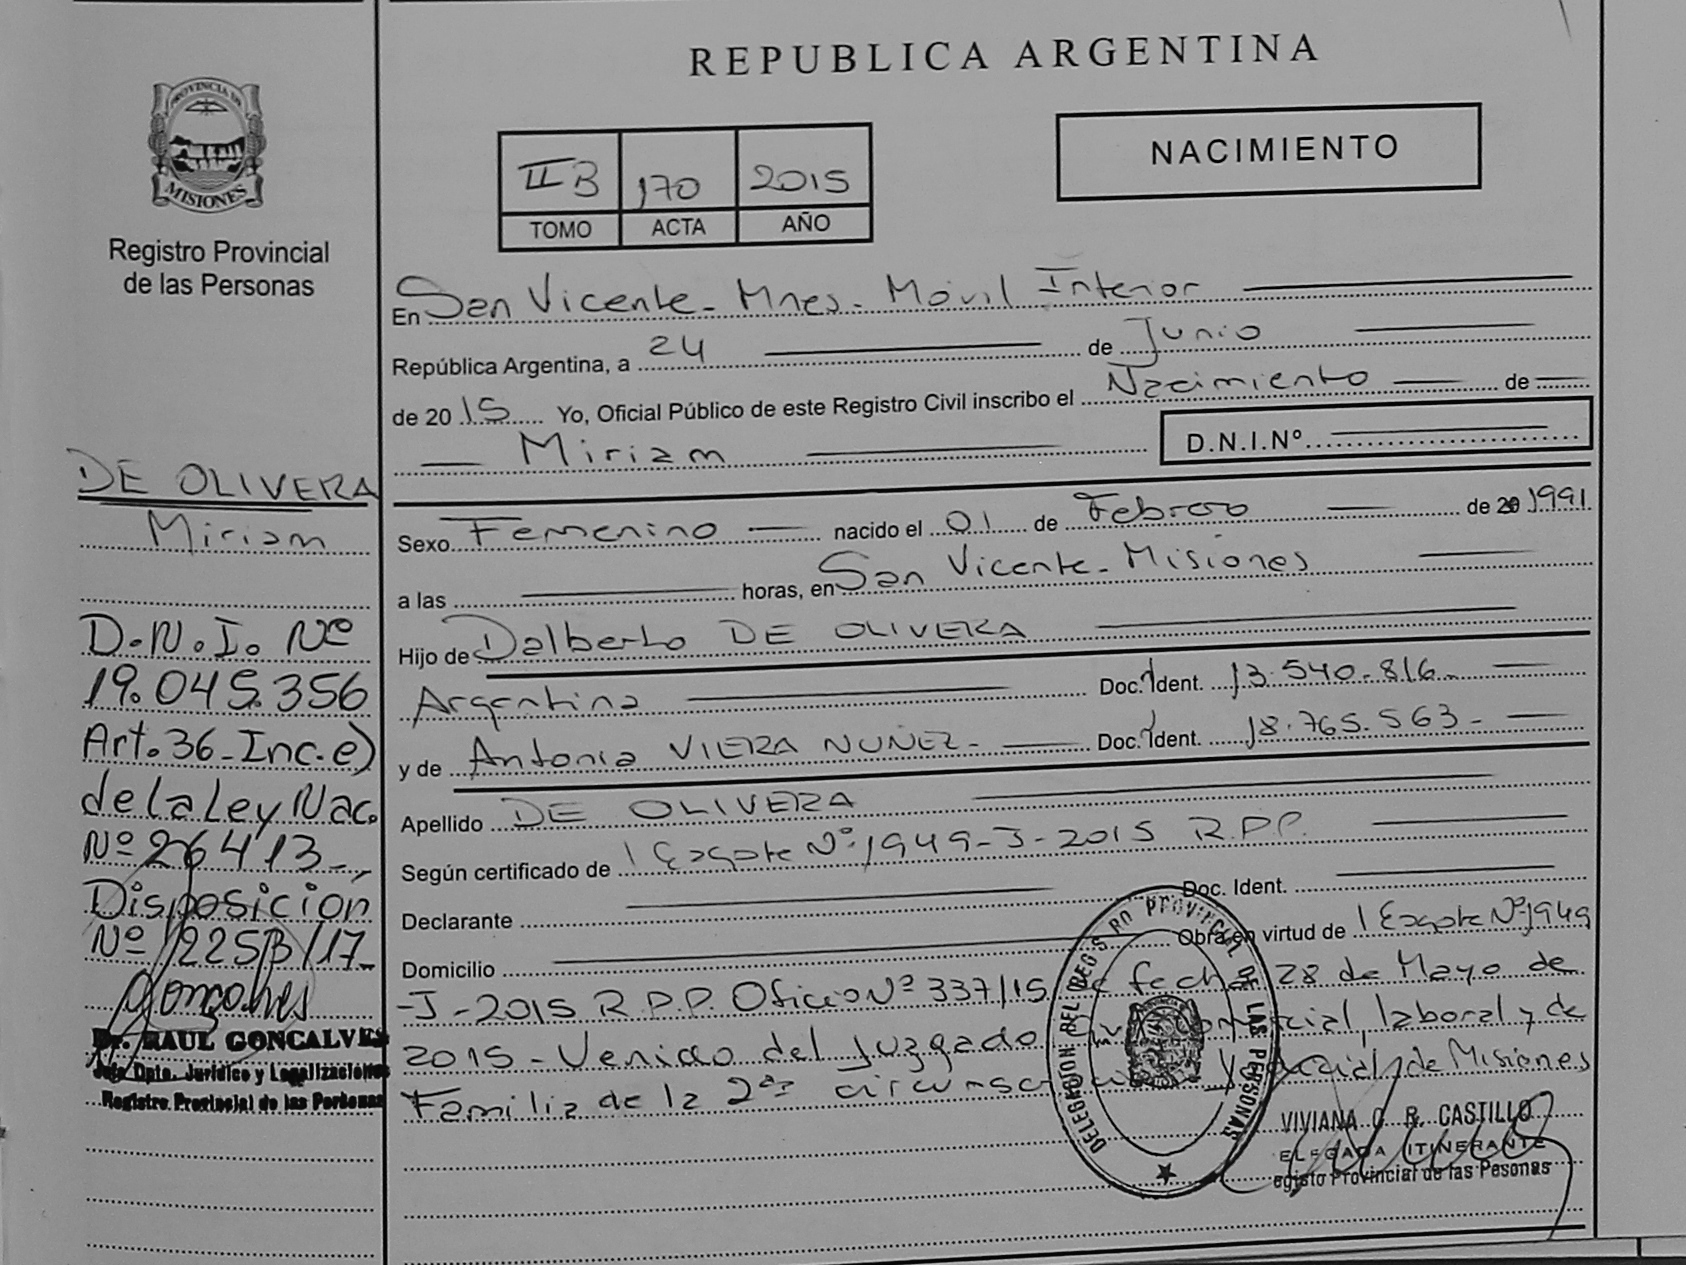 PROVINCIA DE
MISIONES
Registro Provincial
de las Personas
DE OLIVERA
Miriam
D.N.I. Nº
19.045.356
Art. 36 - Inc. e)
de la Ley Nac.
Nº 26413 -,
Disposición
Nº 1225B/17-
Dr. RAUL GONCALVES
Jefe Dpto. Jurídico y Legalizaciones
Registro Provincial de las Personas
REPUBLICA ARGENTINA
NACIMIENTO
II B 170 2015
TOMO ACTA AÑO
En San Vicente - Mnes - Móvil Interior
República Argentina, a 24 de Junio
de 2015 Yo, Oficial Público de este Registro Civil inscribo el Nacimiento de
Miriam D.N.I.Nº
Sexo Femenino nacido el 01 de Febrero de 20 1991
a las horas, en San Vicente - Misiones
Hijo de Dalberto DE OLIVERA
Argentina Doc. Ident. 13.540.816-
y de Antonia VIERA NUÑEZ - Doc. Ident. 18.765.563-
Apellido DE OLIVERA
Según certificado de 1 Expte Nº 1949-J-2015 R.P.P.
Declarante Doc. Ident.
Domicilio Obra en virtud de 1 Expte Nº 1949
-J-2015 R.P.P. Oficio Nº 337/15 de fecha 28 de Mayo de
2015 - Venido del Juzgado comercial, laboral y de
Familia de la 2da circunscripción Judicial de Misiones
DELEGACION DEL REGISTRO PROVINCIAL DE LAS PERSONAS
VIVIANA C. R. CASTILLO
ELEGADA ITINERANTE
egisto Provincial de las Pesonas